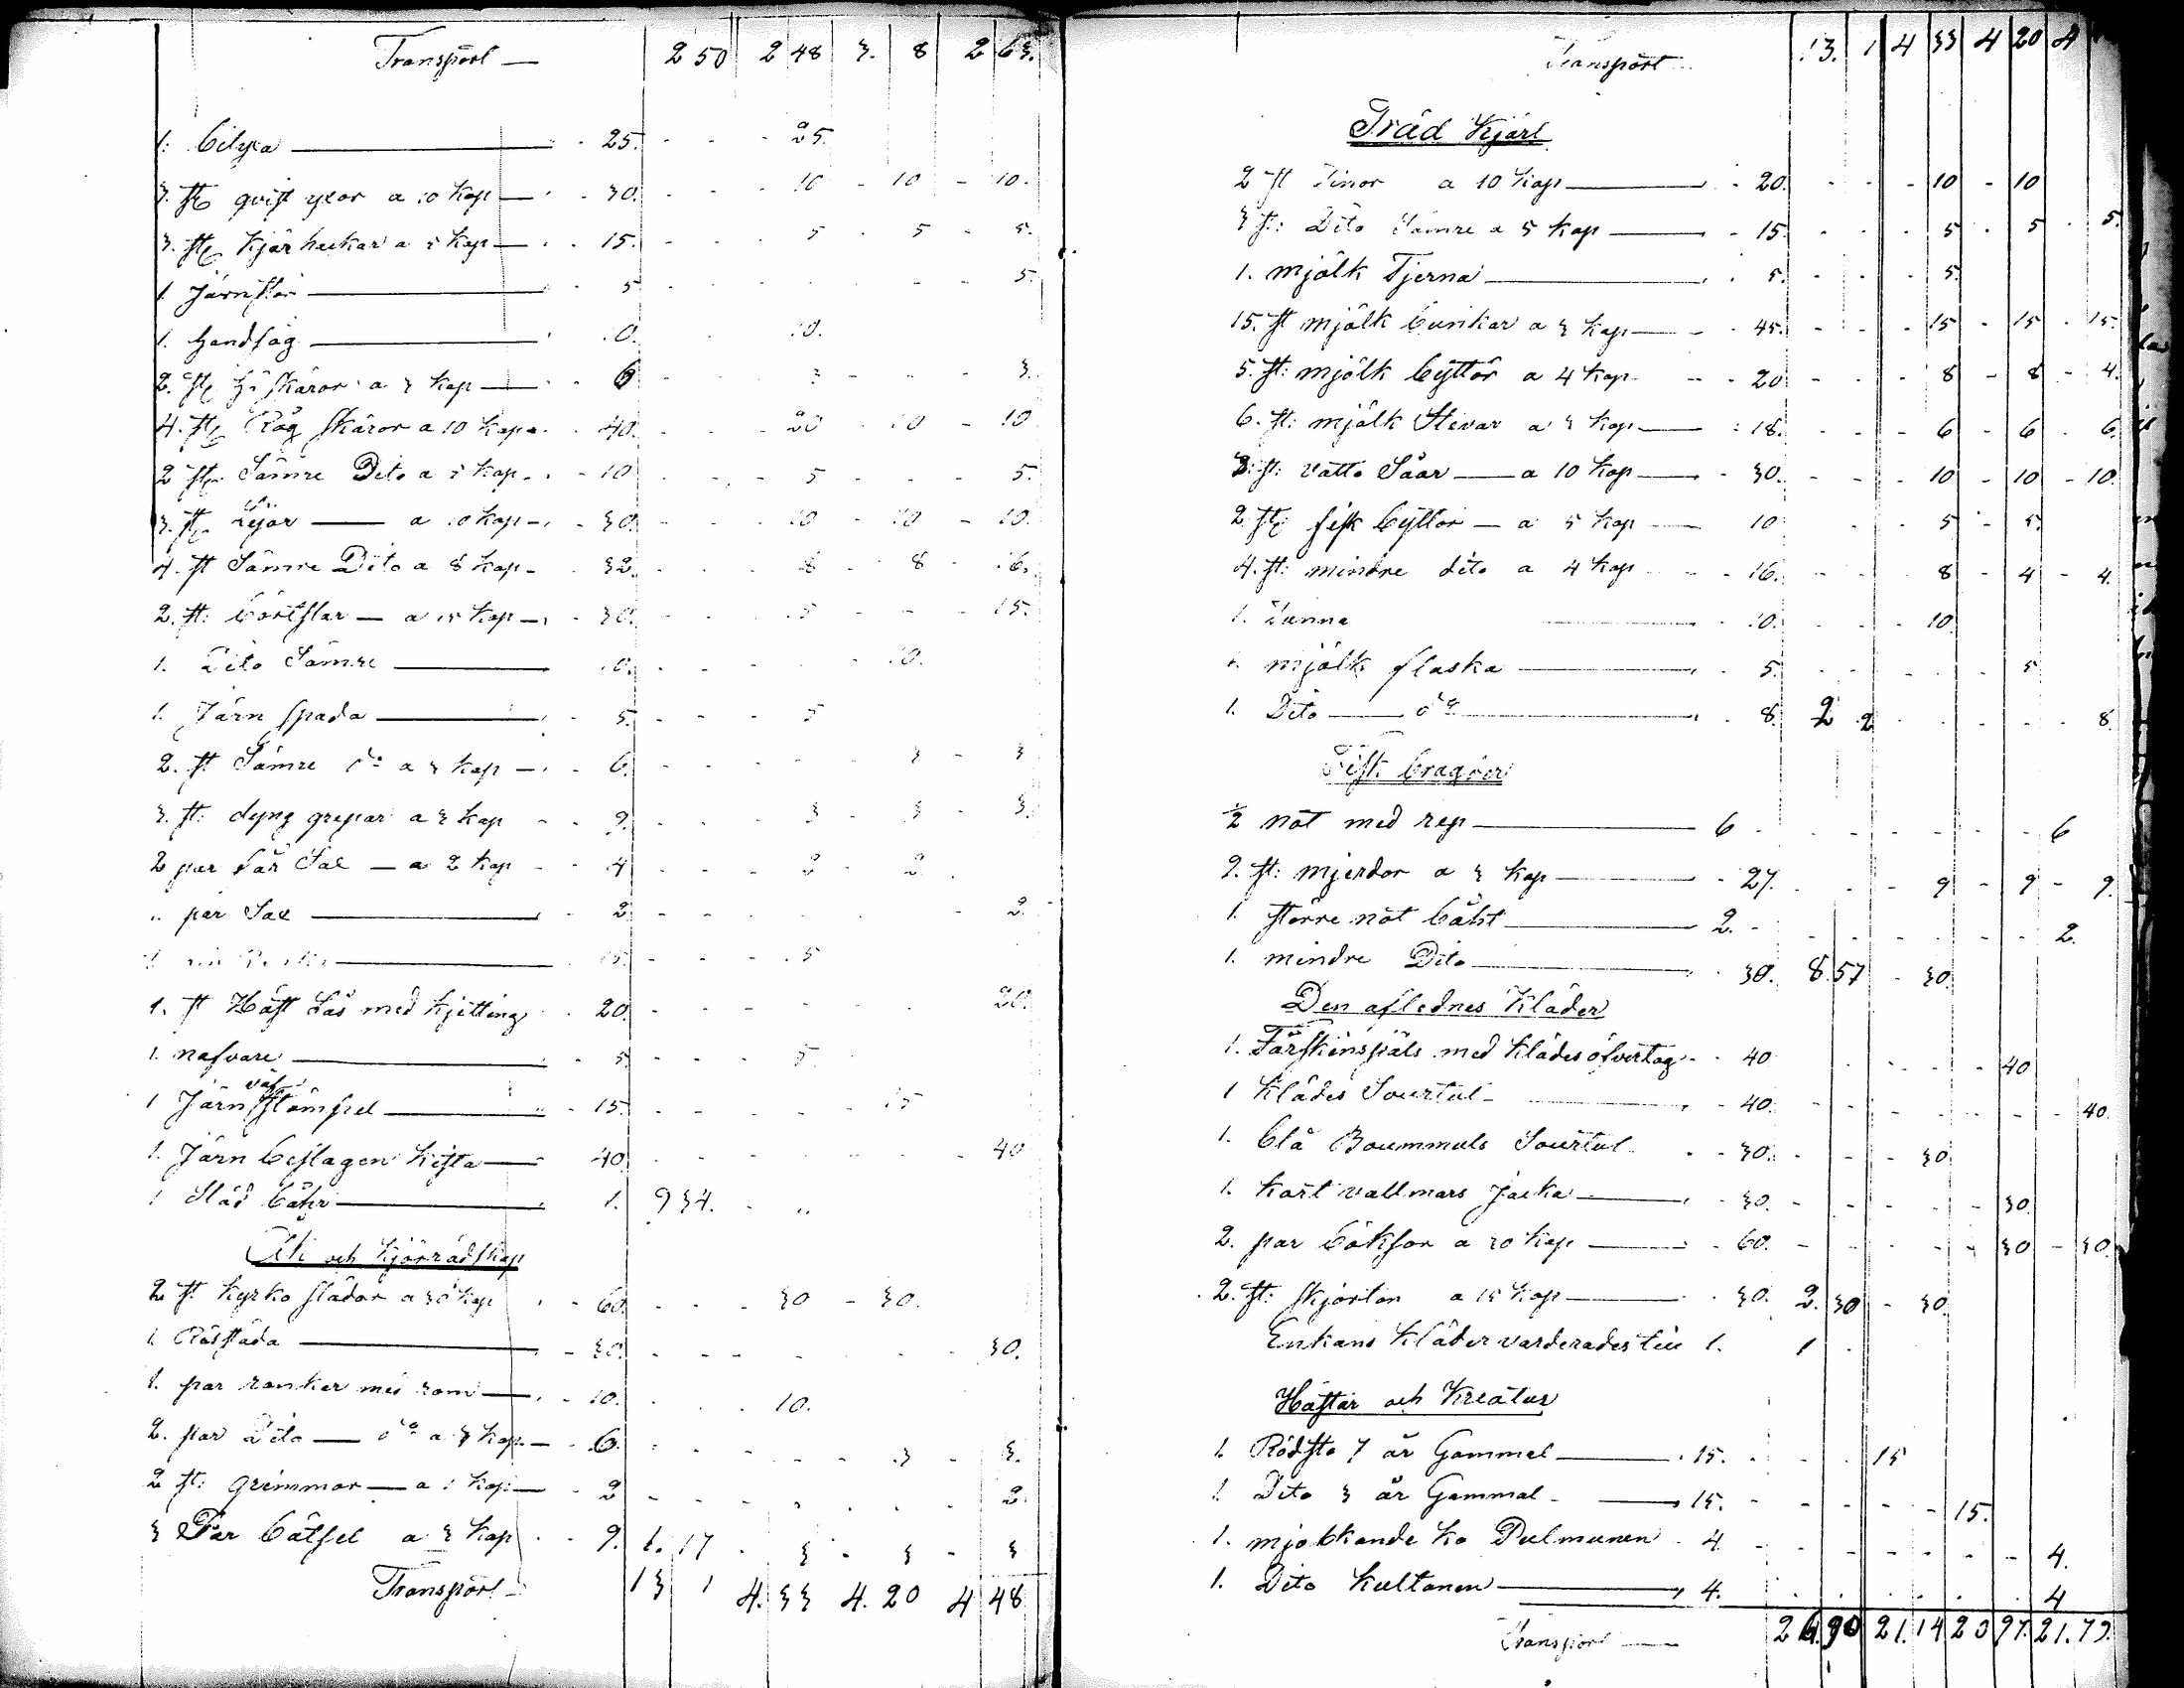 Transport — 2 50 2 48 3. 8 2 63.
1. bilyxa — 25. 25.
3. st qvist yxor a 10 kop — 30. 10 10 10.
3. st kjärhackar a 5 kop — 15. 5 5 5.
1 Järnstör — 5 5.
1. handsåg — 10. 10.
2. st skäror a 3 kop — 6 3 3.
4. st Råg skäror a 10 kop 40. 20 10 10
2 st Sämre Dito a 5 kop 10 5 5.
3. st Lijor — a 10 kop — 30. 10 10 10.
4. st Sämre Dito a 8 kop 32. 8 8 16.
2. st: — a 15 kop — 30. 15 15.
1. Dito Sämre — 10. 10.
1. Järn spada — 5. 5
2. st Sämre do a 3 kop — 6. 3 3
3. st: dyng grepar a 3 kop 9. 3 3 3.
2 par Sax — a 2 kop 4 2 2
par Sax — 2 2.
1 — 15. 15
1. st Häst Lås med kjetting 20. 20.
1. nafvare — 5. 5.
1 Järn väg stämpel — 15. 15
1. Järn beslagen kista — 40. 40
1 Städ — 1. 9 34.
Åk och kjörrädskap
2 st kyrko slädar a 30 kop 60. 30 30.
1. släda — 30. 30.
1. par ranker med ram — 10. 10.
2. par Dito — do a 3 kop — 6. 3 3.
2 st: grimmor — a 1 kop — 2 2.
3 Par bätsel a 3 kop 9. 1. 17 3 3 3
Transport 13 1 4. 33 4. 20 4 48
Transport 13. 1 4 33 4 20 4
Träd Kjärl
2 st Tinor a 10 kop — 20. 10 10
3 st: Dito Sämre a 5 kop — 15. 5 5 5.
1. mjölk Tjerna — 5. 5.
15. st mjölk bunkar a 3 kop — 45. 15 15 15.
5. st: mjölk byttor a 4 kop 20 8 8 4.
6. st: mjölk Stevar a 3 kop — 18. 6 6 6.
3. st: vatte Såar — a 10 kop — 30. 10 10 10.
2. st fisk byttor — a 5 kop — 10 5 5.
4. st: mindre dito a 4 kop 16. 8 4 4.
1. 10. 10
1. mjölk flaska — 5. 5
1. Dito — do — 8. 2 2 8.
Fisk bragder
½ not med rep — 6 6
9. st: mjerdor a 3 kop — 27. 9 9 9.
1. större not båht — 2. 2.
1. mindre Dito — 30. 8 57 30.
Den aflednes Kläder
1. Fårskinspäls med klädesöfvertag 40 40
1 Klädes Sourtut 40. 40.
1. blå Boummuls Sourtut 30. 30
1. kort vallmars Jacka — 30. 30
2. par böksor a 30 kop — 60. 30 30.
2. st: skjortor a 15 kop — 30. 2. 30 30.
Enkans kläder varderades till 1. 1
Hästar och Kreatur
1. Rödsto 7 år Gammel — 15. 15
1. Dito 3 år Gammal — 15. 15.
1. mjolkande ko Pulmunen 4 4.
1. Dito Kultanen — 4. 4
Transport — 26 90 21. 14 20 97. 21. 79.